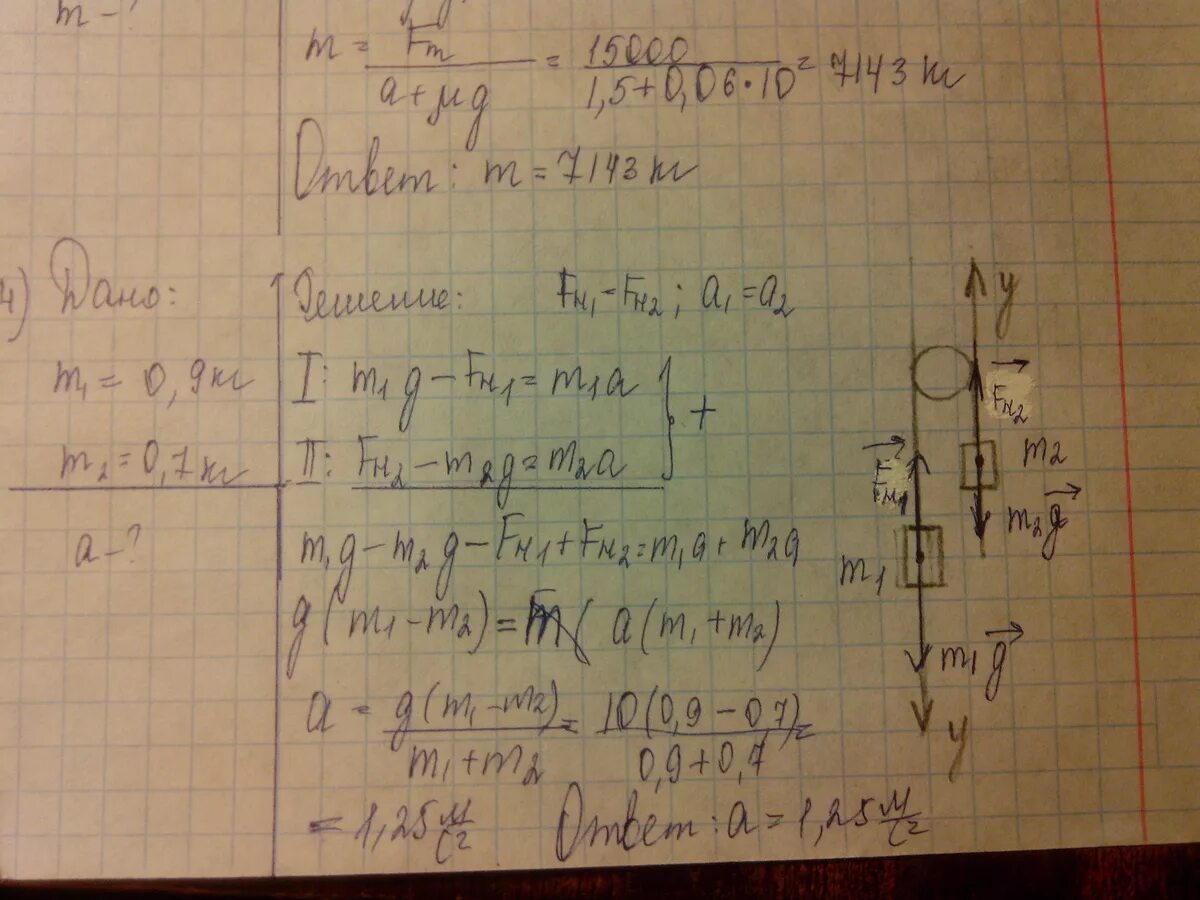 m - ?
m = Fт / (a + μg) = 15000 / (1,5 + 0,06 · 10) = 7143 кг
Ответ: m = 7143 кг
4) Дано:
m₁ = 0,9 кг
m₂ = 0,7 кг
a - ?
Решение: Fн₁ = Fн₂ ; a₁ = a₂
I: m₁g − Fн₁ = m₁a
II: Fн₂ − m₂g = m₂a
} +
m₁g − m₂g − Fн₁ + Fн₂ = m₁a + m₂a
g(m₁ − m₂) = a(m₁ + m₂)
a = g(m₁ − m₂) / (m₁ + m₂) = 10(0,9 − 0,7) / (0,9 + 0,7) =
= 1,25 м/с² Ответ: a = 1,25 м/с²
y
Fн₂
m₂
Fн₁
m₂g
m₁
m₁g
y